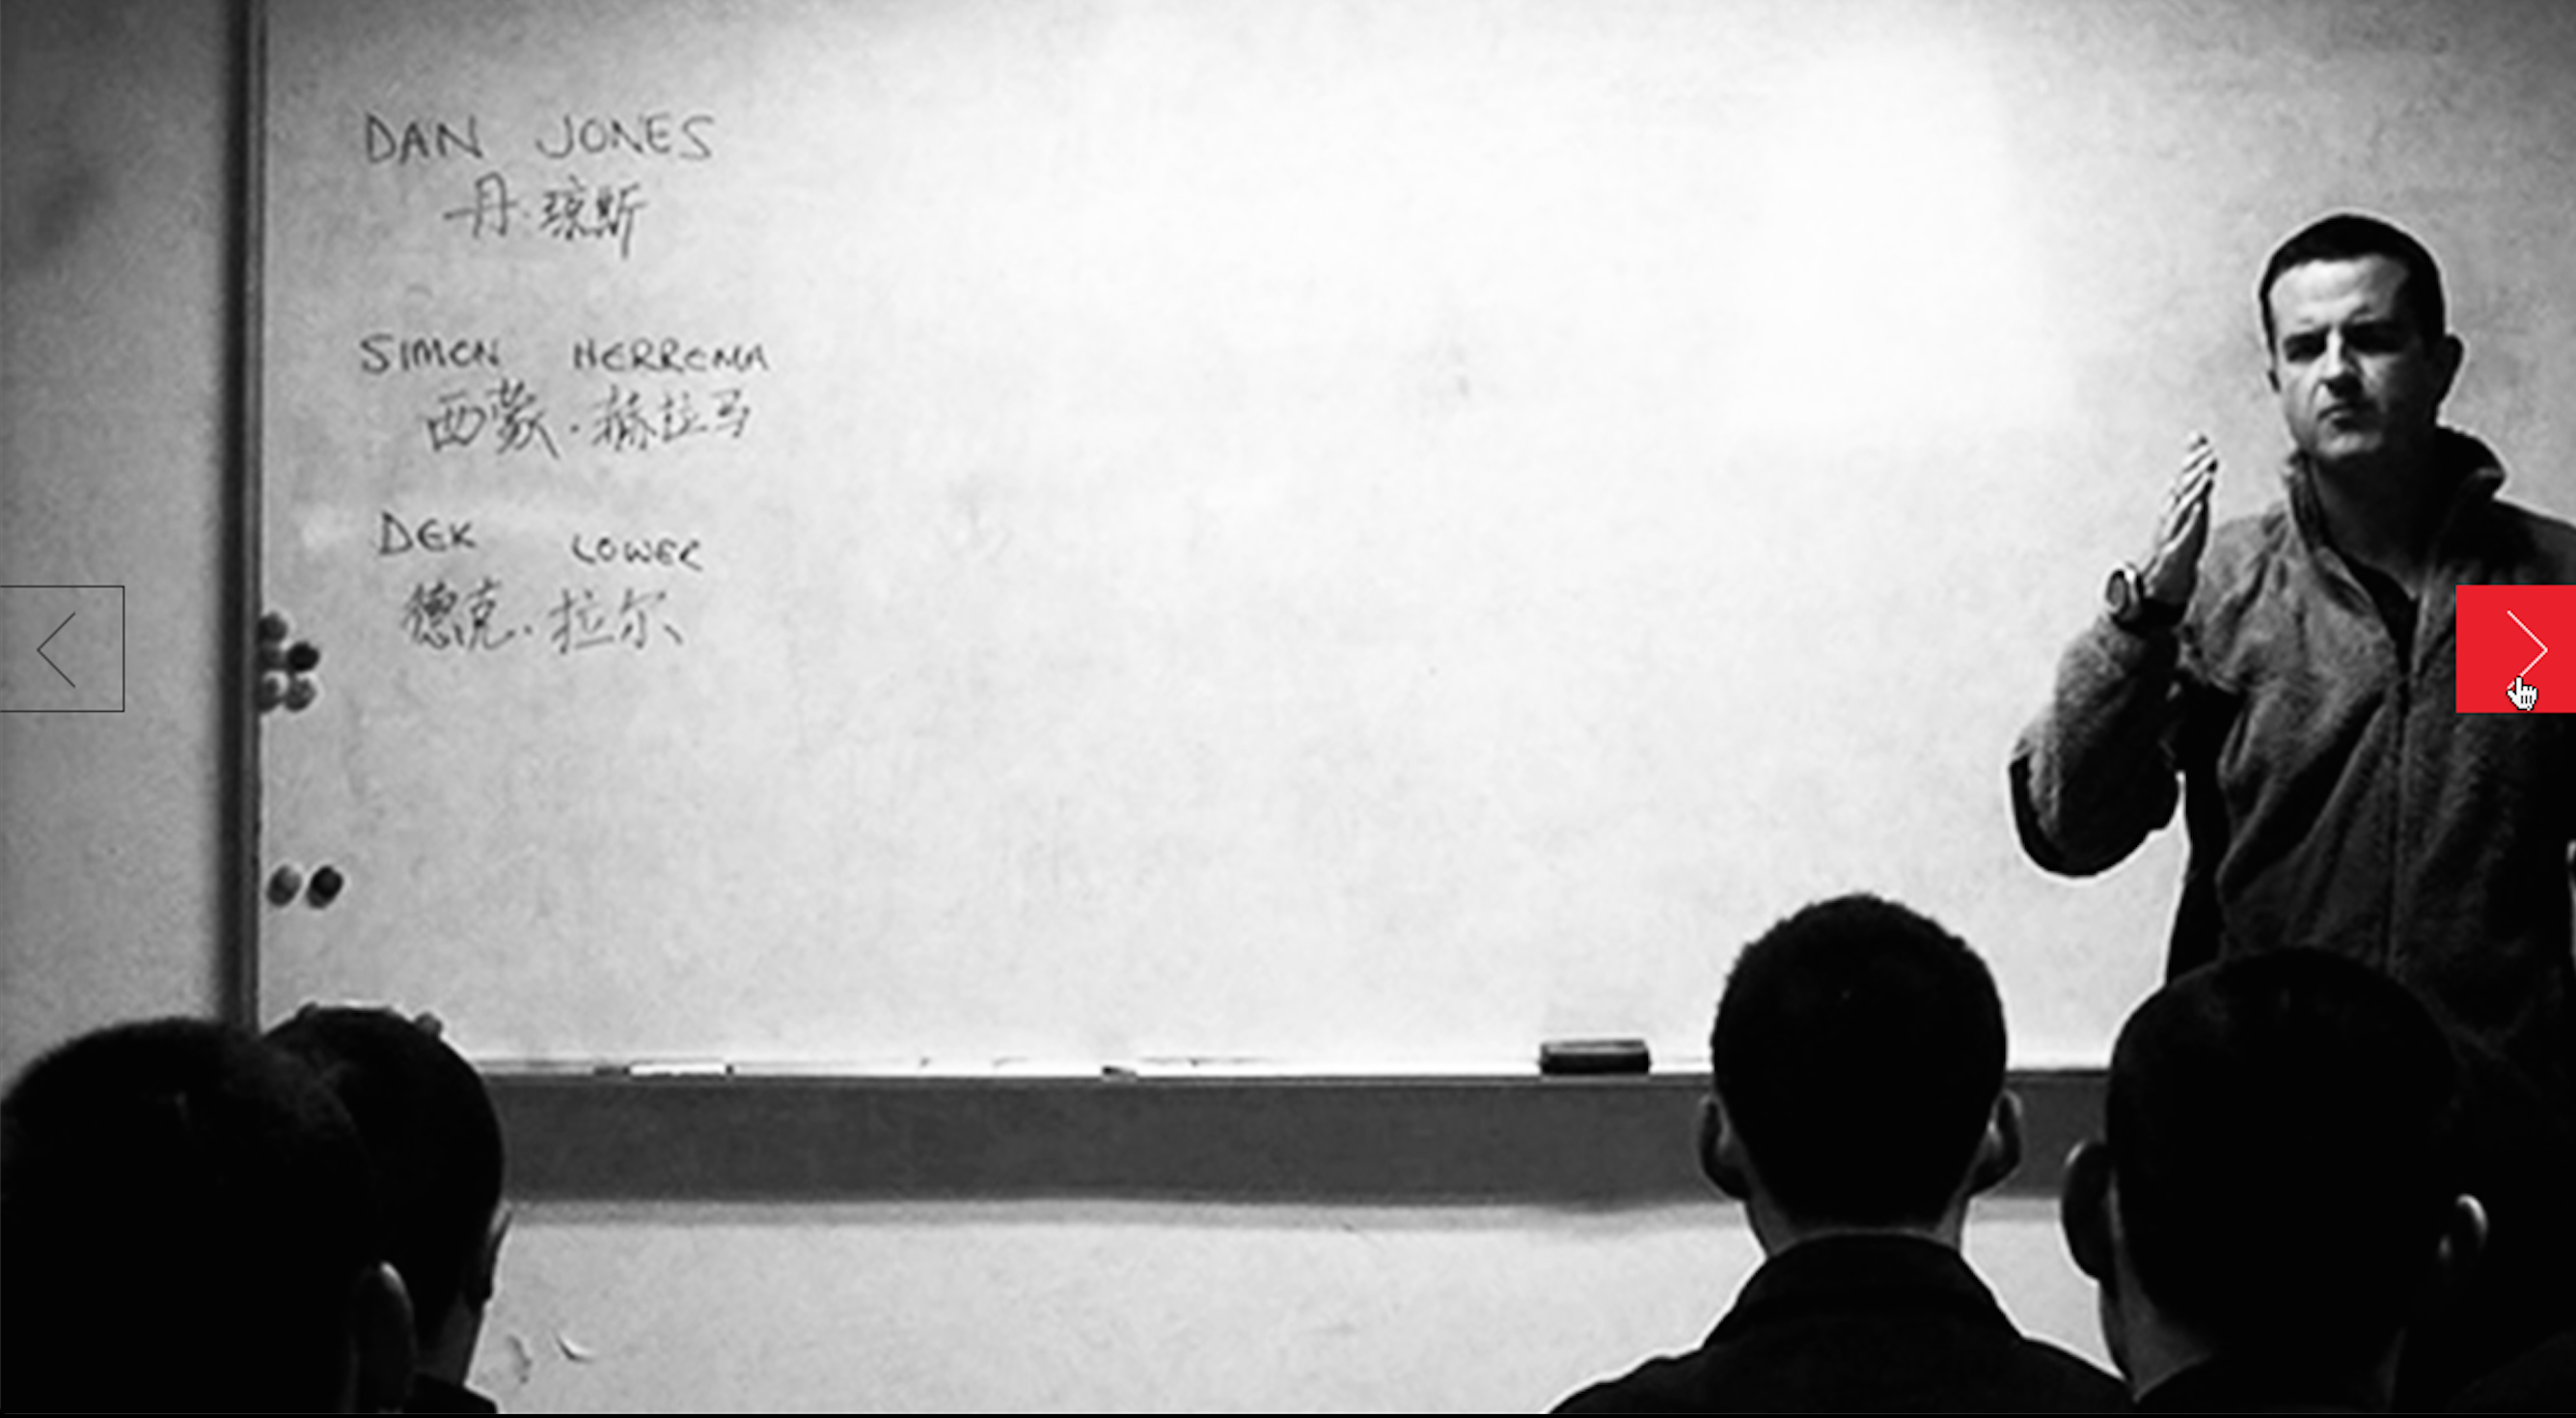 DAN JONES
丹·琼斯
SIMON HERREMA
西蒙·赫拉马
DEK LOWER
德克·拉尔